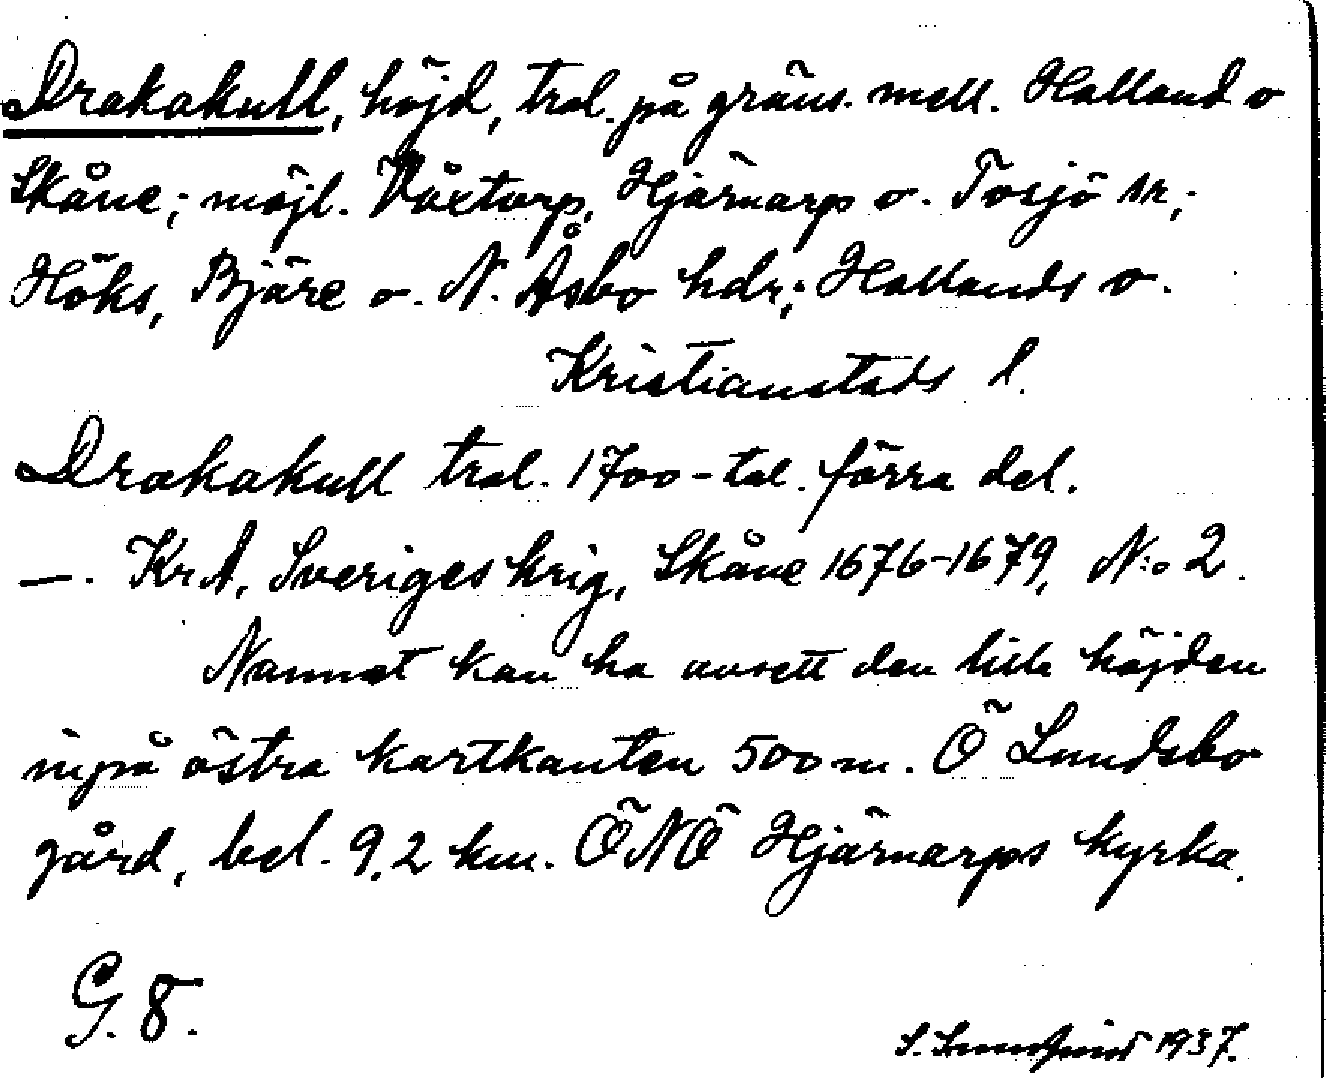 Drakakull, höjd, trol. på gräns. mell. Halland o
Skåne; möjl. Våxtorp, Hjärnarp o. Tosjö sn;
Höks, Bjäre o. N. Åsbo hdr; Hallands o.
Kristianstads l.
Drakakull trol. 1700-tal. förra del.
—. KrA, Sveriges krig, Skåne 1676-1679, N:o 2.
Namnet kan ha avsett den lilla höjden
inpå östra kartkanten 500 m. Ö Lundsbo
gård, bel. 9,2 km. ÖNÖ Hjärnarps kyrka.
G. 8.
S. 1937.